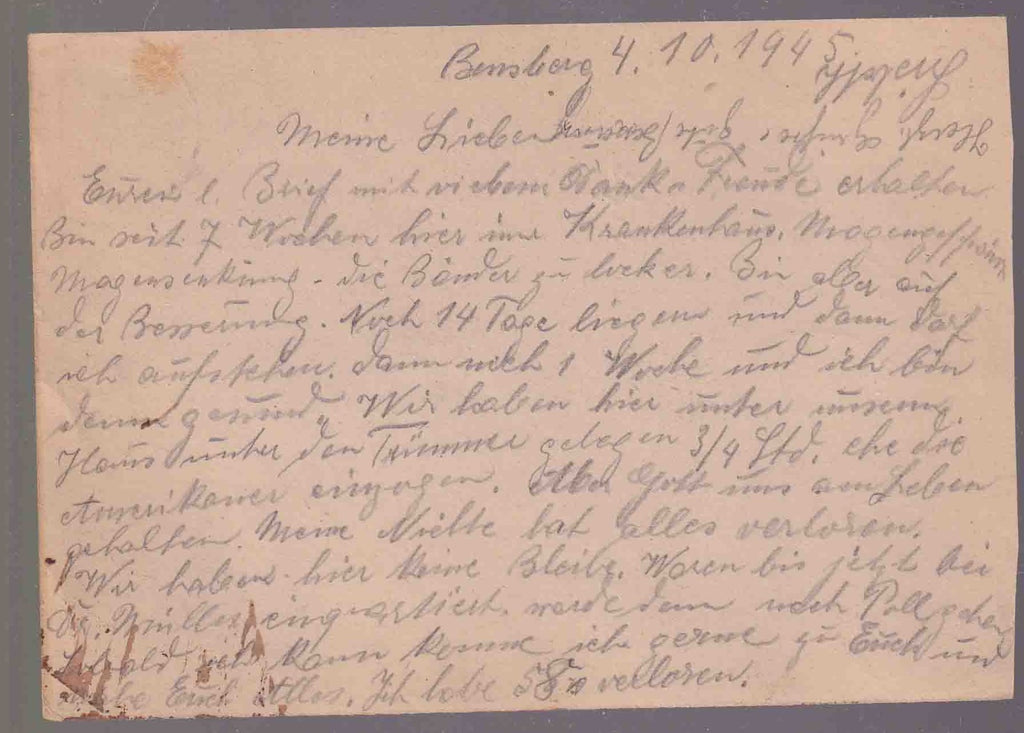 Bensberg 4. 10. 1945
Meine Lieben
Euren l. Brief mit vielem Dank u Freude erhalten
Bin seit 7 Wochen hier im Krankenhaus. Magengeschwür
Magensenkung - die Bänder zu locker. Bin aber auf
der Besserung. Noch 14 Tage liegen und dann darf
ich aufstehen. dann noch 1 Woche und ich bin
dann gesund. Wir haben hier unter unserm
Haus unter den Trümmer gelegen 3/4 Std. ehe die
Amerikaner einzogen. Aber Gott uns am Leben
gehalten. Meine Nichte hat alles verloren.
Wir haben hier keine Bleibe. Waren bis jetzt bei
Müller einquartiert. werde dann nach Poll gehen
Sobald ich kann komme ich gerne zu Euch und
Euch Alles. Ich habe 58 verloren.